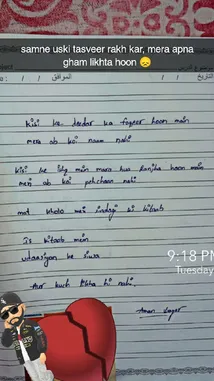 samne uski tasveer rakh kar, mera apna
gham likhta hoon 😞
الموافق / /
التاريخ / /
Kisi ke deedar ka faqeer hoon main
mera ab koi naam nahi
Kisi ke ishq mein mara hua ranjha hoon main
meri ab koi pehchaan nahi
mat kholo meri zindagi ki kitaab
Is kitaab mein
udaasiyon ke siwa
Aur kuch likha hi nahi.
9:18 PM
Tuesday